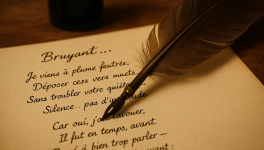 Bruyant...
Je viens à plume feutrée,
Déposer ces vers muets
Sans troubler votre quiétude
Silence.. pas d'
Car oui, j'
Il fut en temps, avant.
bien trop parler –